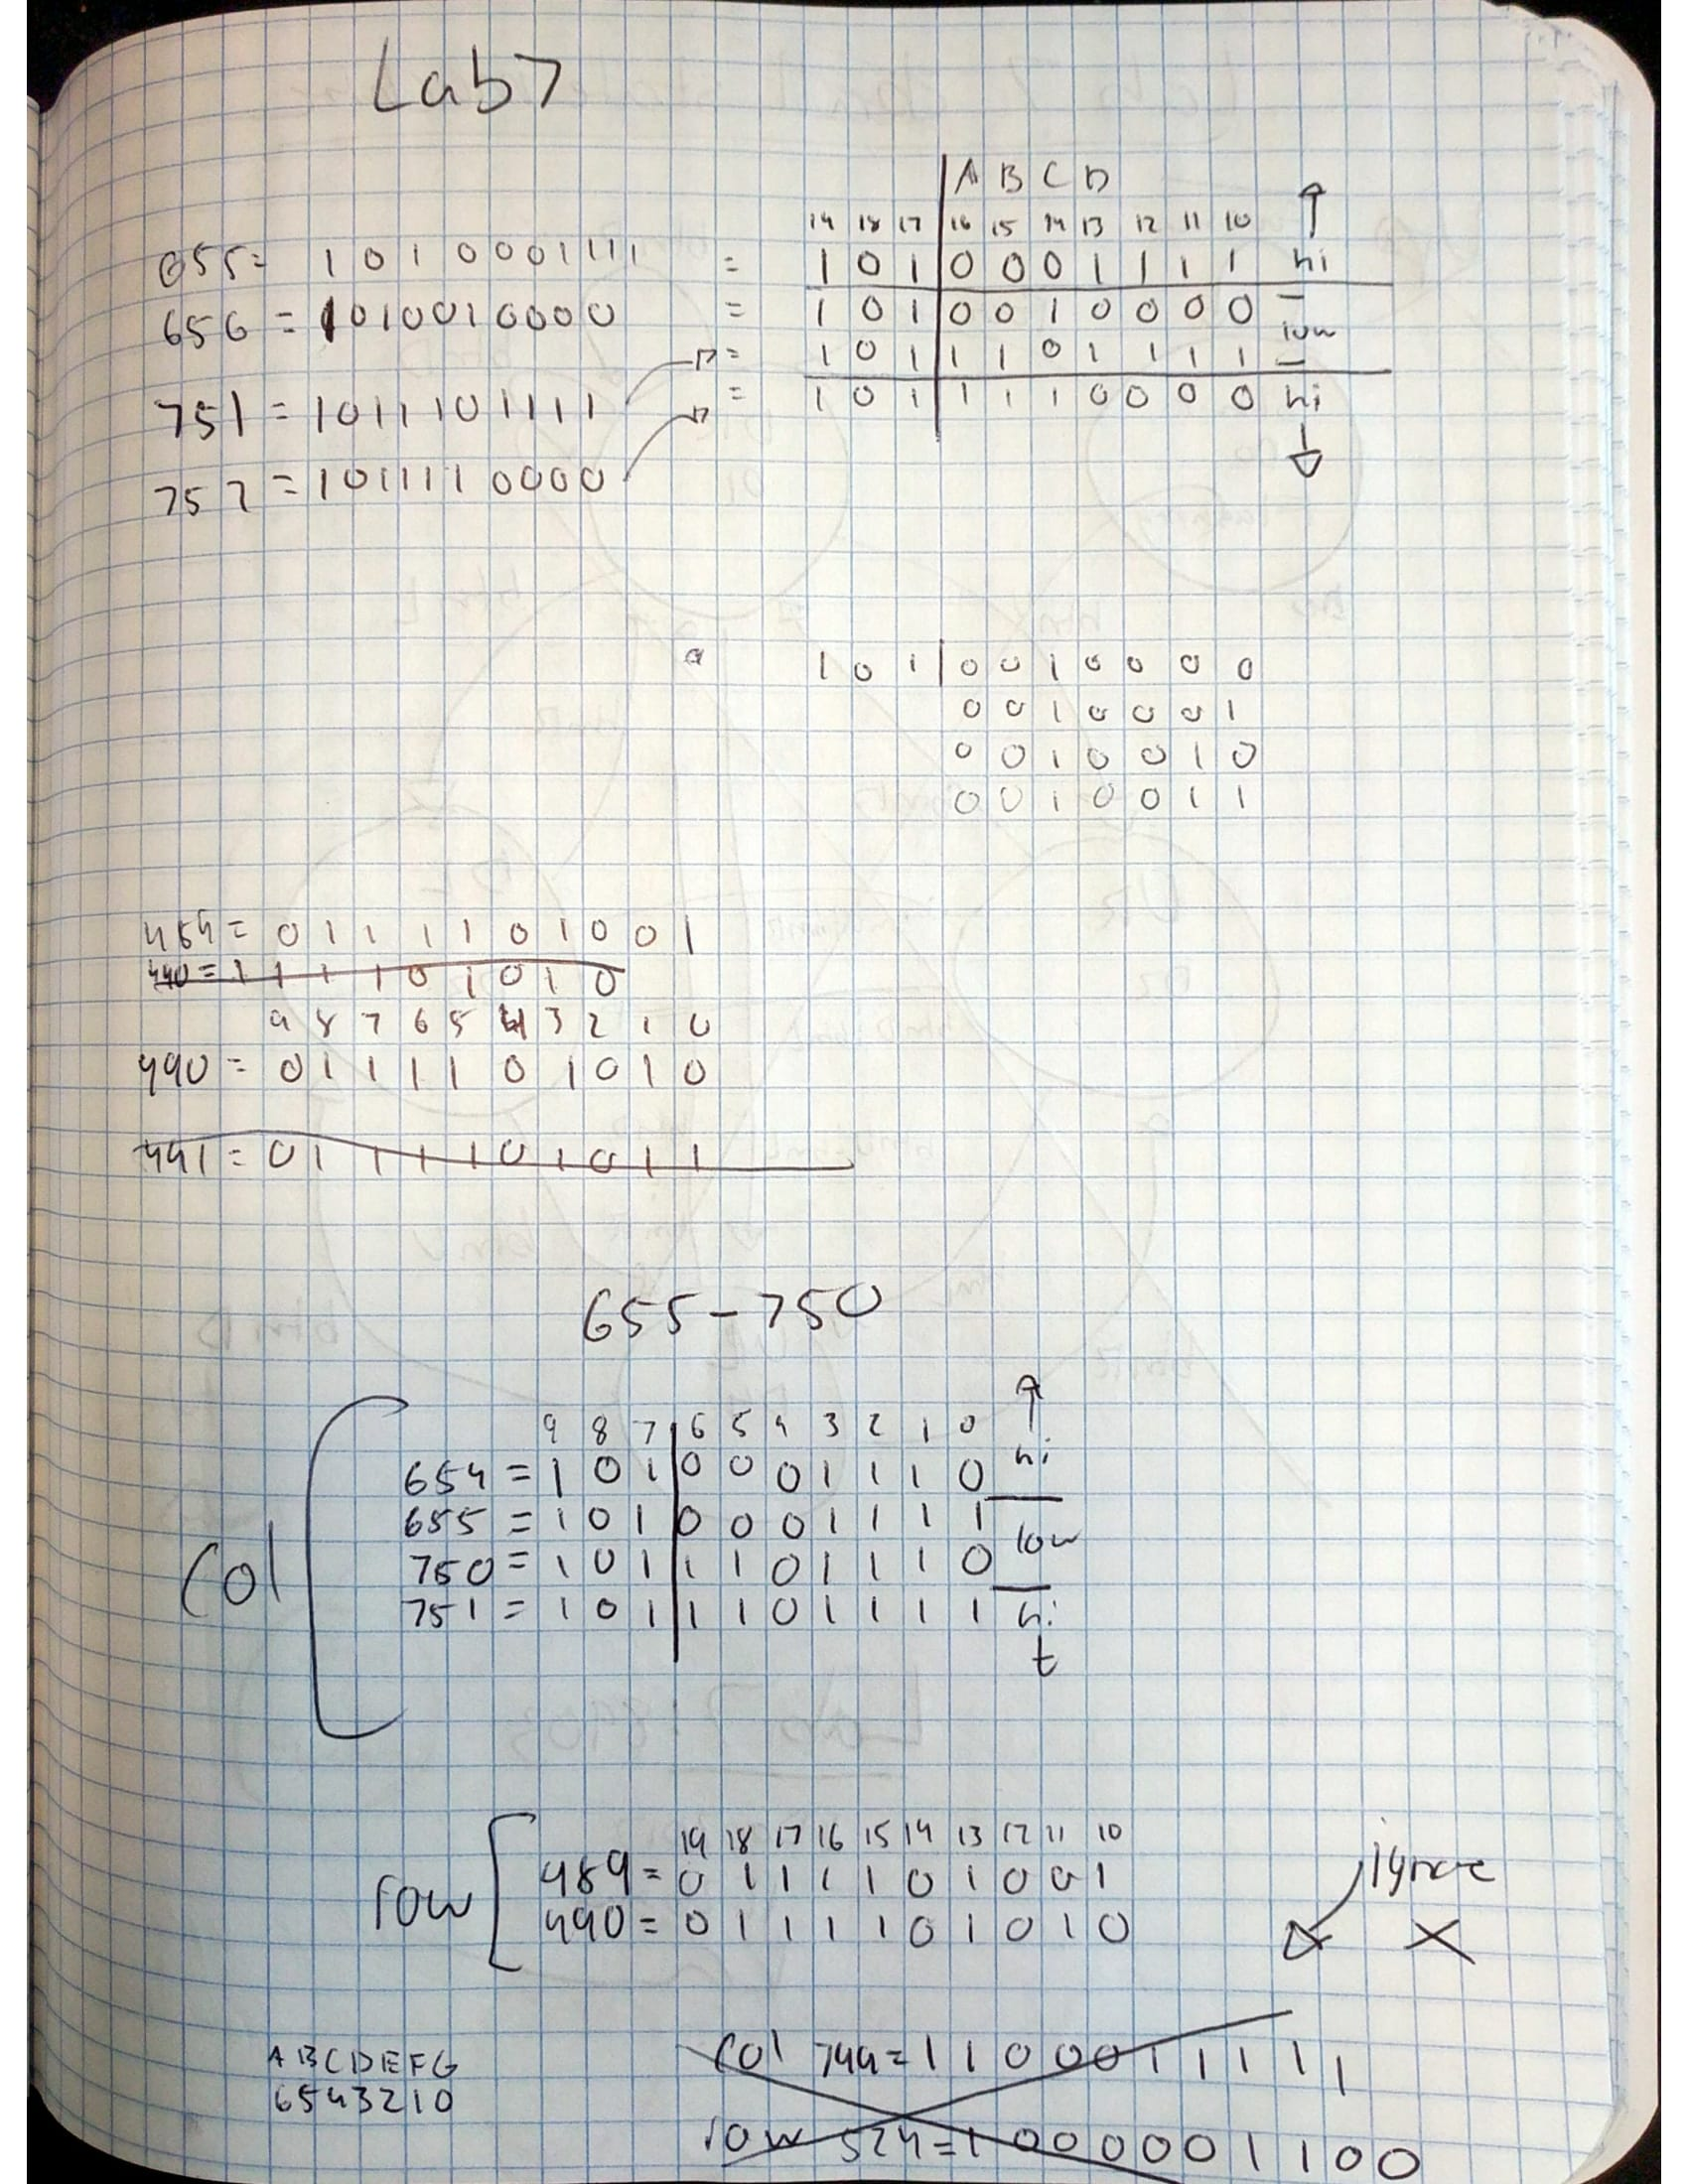 Lab 7
A B C D
19 18 17 16 15 14 13 12 11 10
655 = 1010001111 = 1 0 1 0 0 0 1 1 1 1 hi
656 = 1010010000 = 1 0 1 0 0 1 0 0 0 0 low
751 = 1011101111 = 1 0 1 1 1 0 1 1 1 1
752 = 1011110000 = 1 0 1 1 1 1 0 0 0 0 hi
1 0 1 0 0 1 0 0 0 0
0 0 1 0 0 0 1
0 0 1 0 0 1 0
0 0 1 0 0 1 1
489 = 0 1 1 1 1 0 1 0 0 1
490 = 1 1 1 1 0 1 0 1 0
9 8 7 6 5 4 3 2 1 0
490 = 0 1 1 1 1 0 1 0 1 0
491 = 0 1 1 1 1 0 1 0 1 1
655 - 750
9 8 7 6 5 4 3 2 1 0
654 = 1 0 1 0 0 0 1 1 1 0 hi
655 = 1 0 1 0 0 0 1 1 1 1 low
Col
750 = 1 0 1 1 1 0 1 1 1 0
751 = 1 0 1 1 1 0 1 1 1 1 hi
19 18 17 16 15 14 13 12 11 10
row
489 = 0 1 1 1 1 0 1 0 0 1
490 = 0 1 1 1 1 0 1 0 1 0
ignore
A B C D E F G
6 5 4 3 2 1 0
Col 799 = 1 1 0 0 0 1 1 1 1 1
row 524 = 1 0 0 0 0 0 1 1 0 0